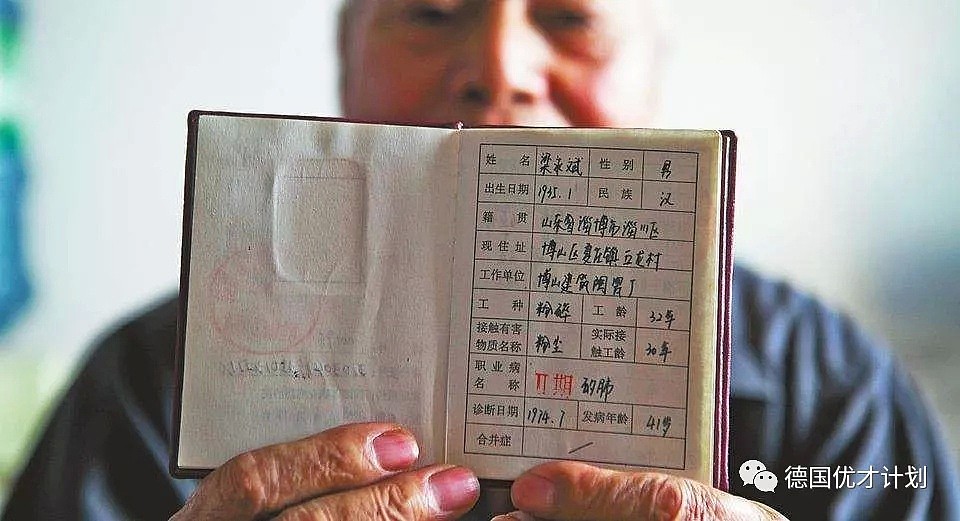 姓名 梁永斌 性别 男
出生日期 1935.1 民族 汉
籍贯 山东省淄博市淄川区
现住址 博山区夏庄镇五龙村
工作单位 博山建筑陶瓷厂
工种 粉碎 工龄 32年
接触有害物质名称 粉尘 实际接触工龄 30年
职业病名称 II期 矽肺
诊断日期 1974.7 发病年龄 41岁
合并症
德国优才计划